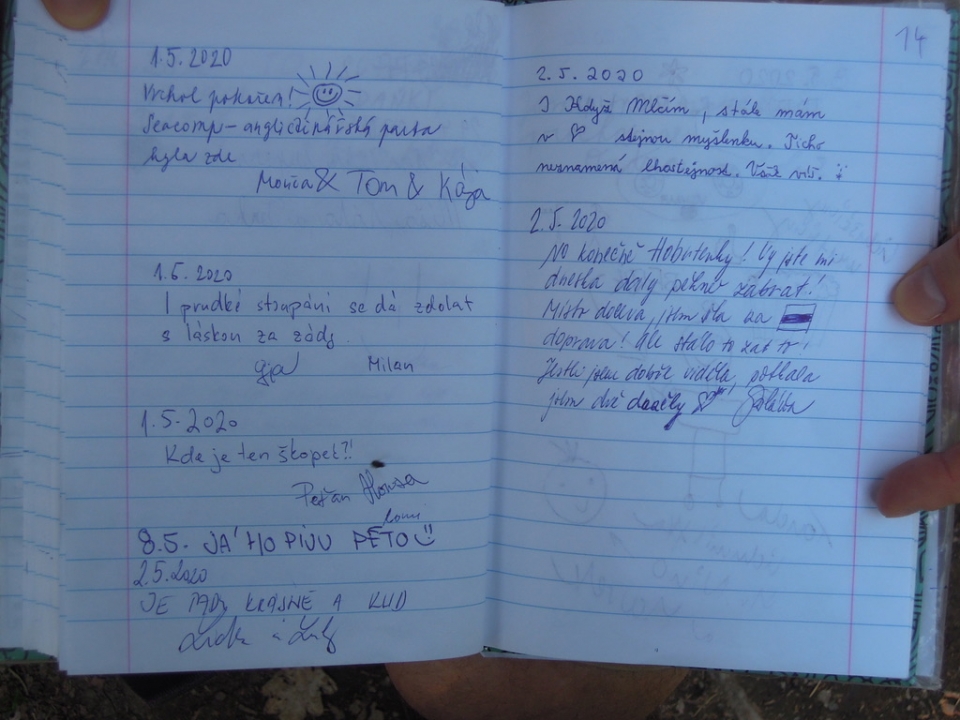 1.5.2020
Vrchol pokořen!
Seacomp-angličtinářská parta
byla zde
Monča & Tom & Kája
1.5.2020
I prudké stoupání se dá zdolat
s láskou za zády.
Milan
1.5.2020
Kde je ten škopek?!
Peťan Honza
8.5. JÁ HO PIJU PÉŤO
2.5.2020
JE TADY KRÁSNĚ A KLID
14
2.5.2020
I Když Mlčím, stále mám
v ♡ stejnou myšlenku. Ticho
neznamená lhostejnost. Však víš. :)
2.5.2020
No konečně Hobulenky! Vy jste mi
dneska daly pěkně zabrat!
Místo doleva, jsem šla na
doprava! Ale stálo to zato!
Jestli jsem dobře viděla, potkala
jsem dvě dračky ♡